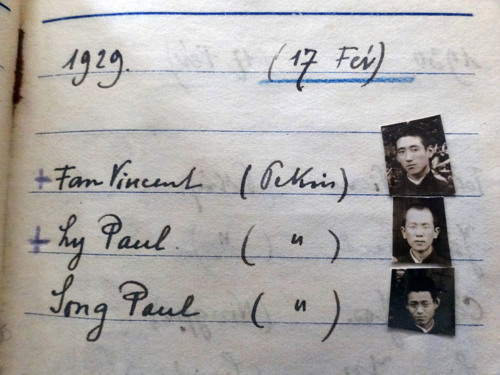 1929. (17 Fév)
+ Fan Vincent (Pekin)
+ Ly Paul. ( " )
Song Paul ( " )